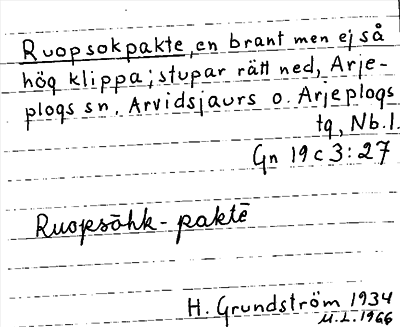 Ruopsokpakte, en brant men ej så
hög klippa; stupar rätt ned, Arje-
plogs sn. Arvidsjaurs o. Arjeplogs
tg, Nb.l.
Gn 19 c 3:27
Ruopsāhk-paktē
H. Grundström 1934
M.L. 1966